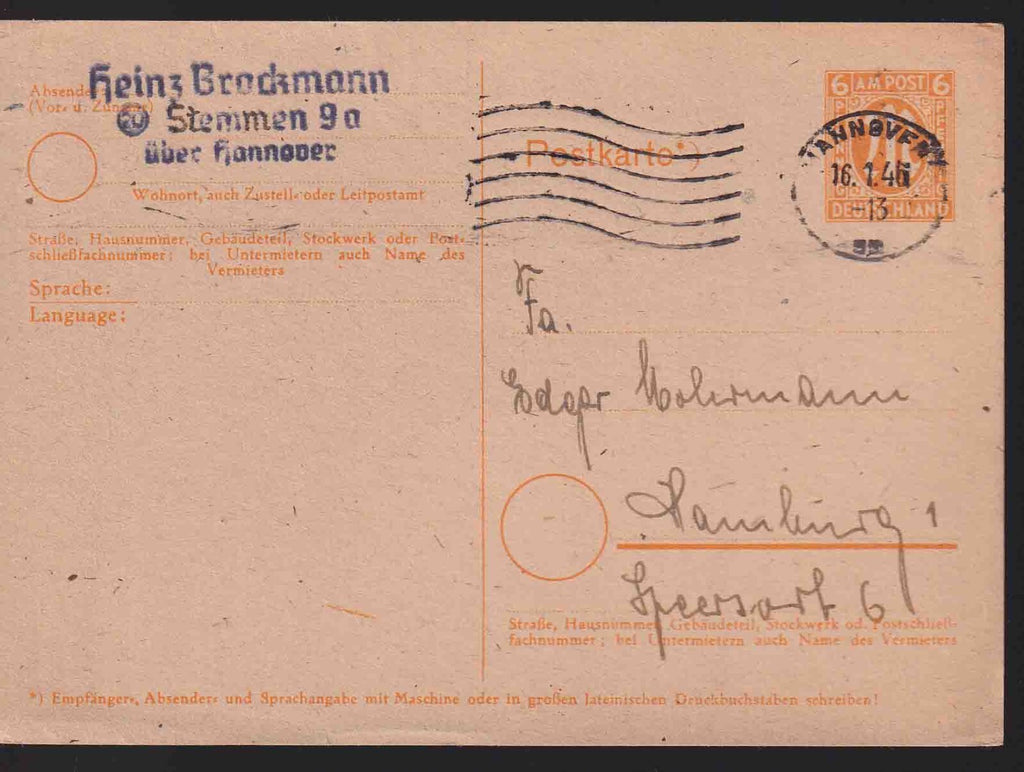 Heinz Brockmann
20 Stemmen 9a
über Hannover
Absender
(Vor- u. Zuname)
Wohnort, auch Zustell- oder Leitpostamt
Straße, Hausnummer, Gebäudeteil, Stockwerk oder Post-
schließfachnummer; bei Untermietern auch Name des
Vermieters
Sprache:
Language:
Postkarte*)
6 AM POST 6
PFENNIG
M
DEUTSCHLAND
HANNOVER
16.1.46
-13
Fa.
Edgar Mohrmann
Hamburg 1
Speersort 6
Straße, Hausnummer, Gebäudeteil, Stockwerk od. Postschließ-
fachnummer; bei Untermietern auch Name des Vermieters
*) Empfänger-, Absender- und Sprachangabe mit Maschine oder in großen lateinischen Druckbuchstaben schreiben!